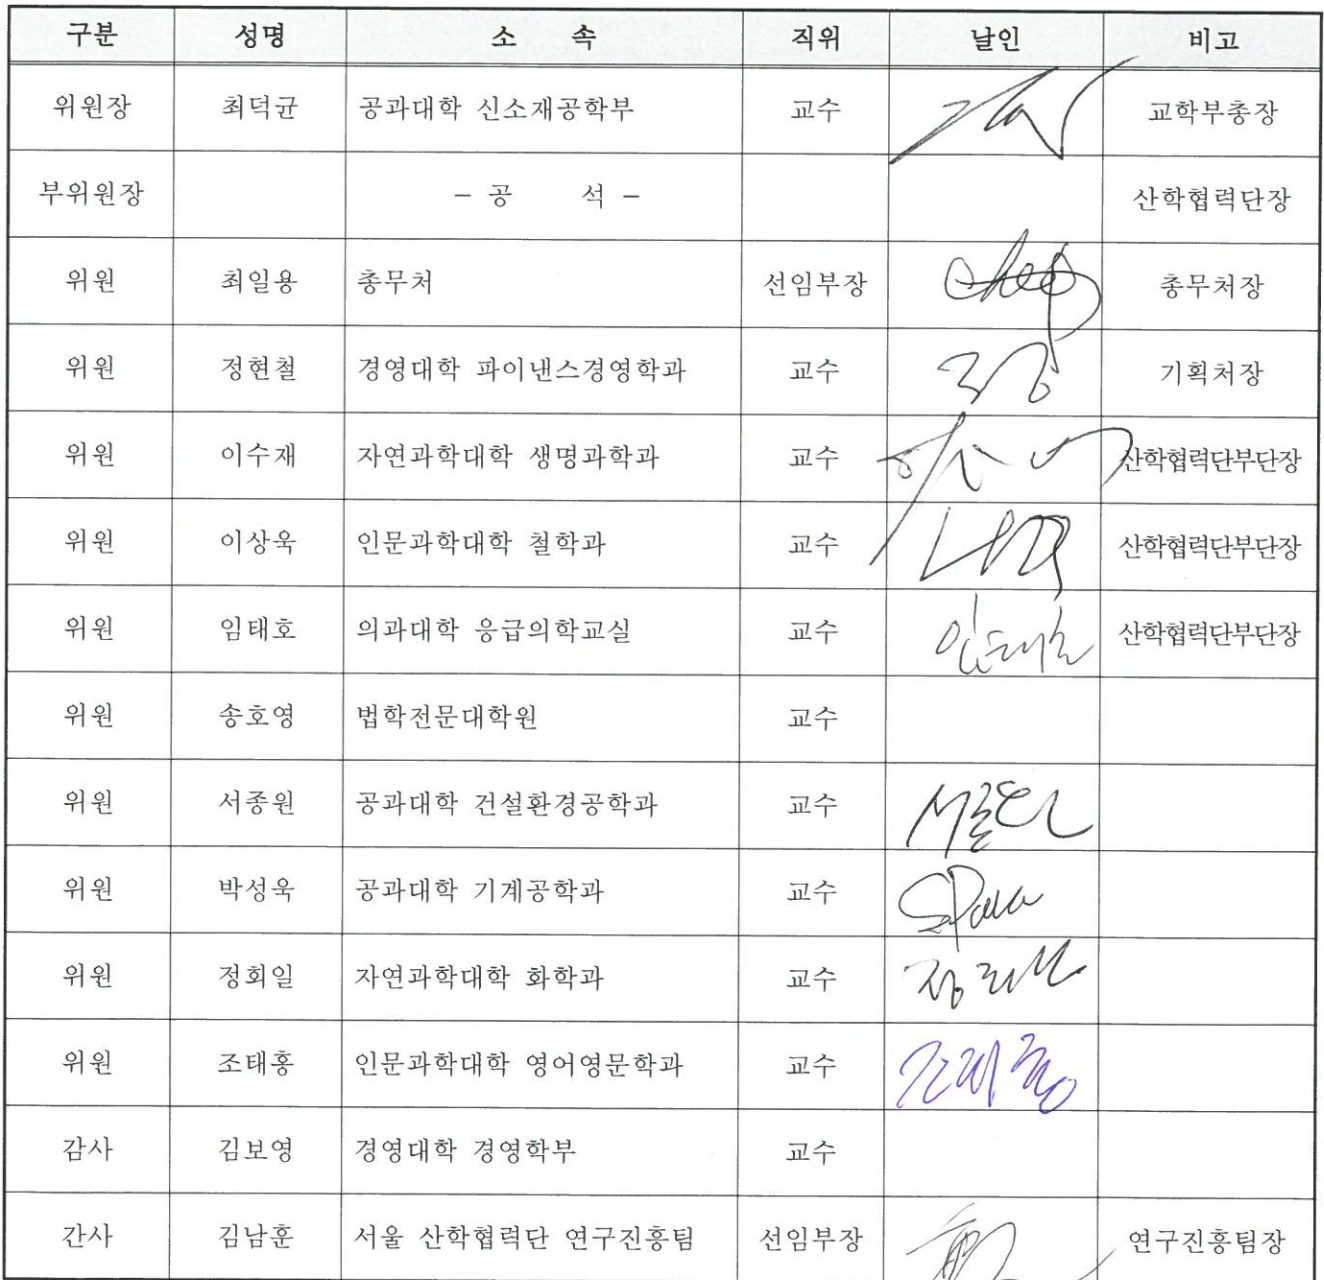 구분 성명 소 속 직위 날인 비고
위원장 최덕균 공과대학 신소재공학부 교수 교학부총장
부위원장 - 공 석 - 산학협력단장
위원 최일용 총무처 선임부장 총무처장
위원 정현철 경영대학 파이낸스경영학과 교수 기획처장
위원 이수재 자연과학대학 생명과학과 교수 산학협력단부단장
위원 이상욱 인문과학대학 철학과 교수 산학협력단부단장
위원 임태호 의과대학 응급의학교실 교수 임태호 산학협력단부단장
위원 송호영 법학전문대학원 교수
위원 서종원 공과대학 건설환경공학과 교수
위원 박성욱 공과대학 기계공학과 교수
위원 정회일 자연과학대학 화학과 교수
위원 조태홍 인문과학대학 영어영문학과 교수 조태홍
감사 김보영 경영대학 경영학부 교수
간사 김남훈 서울 산학협력단 연구진흥팀 선임부장 연구진흥팀장